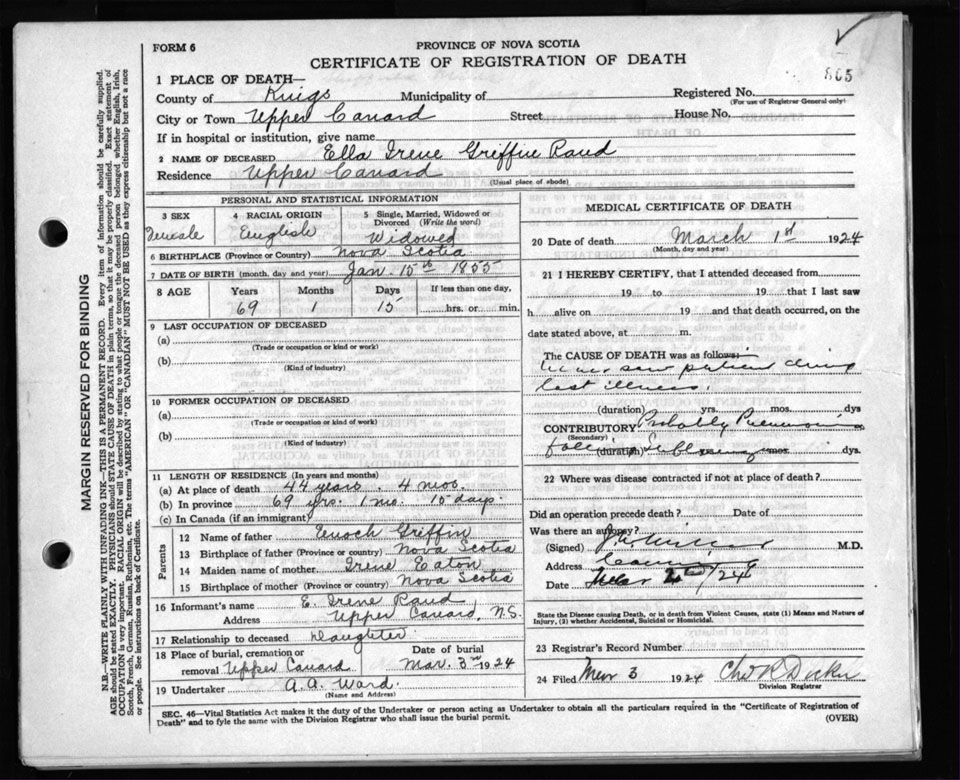 865
FORM 6
PROVINCE OF NOVA SCOTIA
CERTIFICATE OF REGISTRATION OF DEATH
1 PLACE OF DEATH—
County of Kings Municipality of Registered No.
(For use of Registrar General only)
City or Town Upper Canard Street House No.
If in hospital or institution, give name
2 NAME OF DECEASED Ella Irene Griffin Rand
Residence Upper Canard
(Usual place of abode)
PERSONAL AND STATISTICAL INFORMATION
3 SEX 4 RACIAL ORIGIN 5 Single, Married, Widowed or
Divorced (Write the word)
Female English Widowed
6 BIRTHPLACE (Province or Country) Nova Scotia
7 DATE OF BIRTH (month, day and year) Jan. 15th 1855
8 AGE Years Months Days If less than one day,
69 1 15 hrs. or min.
9 LAST OCCUPATION OF DECEASED
(a)
(Trade or occupation or kind or work)
(b)
(Kind of industry)
10 FORMER OCCUPATION OF DECEASED
(a)
(Trade or occupation or kind or work)
(b)
(Kind of industry)
11 LENGTH OF RESIDENCE (In years and months)
(a) At place of death 44 years 4 mos.
(b) In province 69 yrs. 1 mo. 15 days.
(c) In Canada (if an immigrant)
Parents
12 Name of father Enoch Griffin
13 Birthplace of father (Province or country) Nova Scotia
14 Maiden name of mother Irene Eaton
15 Birthplace of mother (Province or country) Nova Scotia
16 Informant's name E. Irene Rand
Address Upper Canard, N.S.
17 Relationship to deceased Daughter
18 Place of burial, cremation or Date of burial
removal Upper Canard Mar. 3rd 1924
19 Undertaker A. A. Ward.
(Name and Address)
MEDICAL CERTIFICATE OF DEATH
20 Date of death March 1st 1924
(Month, day and year)
21 I HEREBY CERTIFY, that I attended deceased from
19 to 19 that I last saw
h alive on 19 and that death occurred, on the
date stated above, at m.
The CAUSE OF DEATH was as follows:
Never saw patient during
last illness.
(duration) yrs. mos. dys
CONTRIBUTORY Probably Pneumonia
(Secondary)
(duration) mos. dys.
22 Where was disease contracted if not at place of death?
Did an operation precede death? Date of
Was there an autopsy?
(Signed) M.D.
Address Canning
Date /24
State the Disease causing Death, or in death from Violent Causes, state (1) Means and Nature of
Injury, (2) whether Accidental, Suicidal or Homicidal.
23 Registrar's Record Number
24 Filed Mar 3 1924
Division Registrar
SEC. 46—Vital Statistics Act makes it the duty of the Undertaker or person acting as Undertaker to obtain all the particulars required in the "Certificate of Registration of
Death" and to fyle the same with the Division Registrar who shall issue the burial permit.
(OVER)
MARGIN RESERVED FOR BINDING
N.B.—WRITE PLAINLY WITH UNFADING INK—THIS IS A PERMANENT RECORD. Every item of information should be carefully supplied.
AGE should be stated EXACTLY. PHYSICIANS should STATE CAUSE OF DEATH in plain terms, so that it may be properly classified. Exact statement of
OCCUPATION is very important. RACIAL ORIGIN will be described by stating to what people or tongue the deceased person belonged whether English, Irish,
Scotch, French, German, Russian, Ruthenian, etc. The terms "AMERICAN" OR "CANADIAN" MUST NOT BE USED as they express citizenship but not a race
or people. See instructions on back of Certificate.